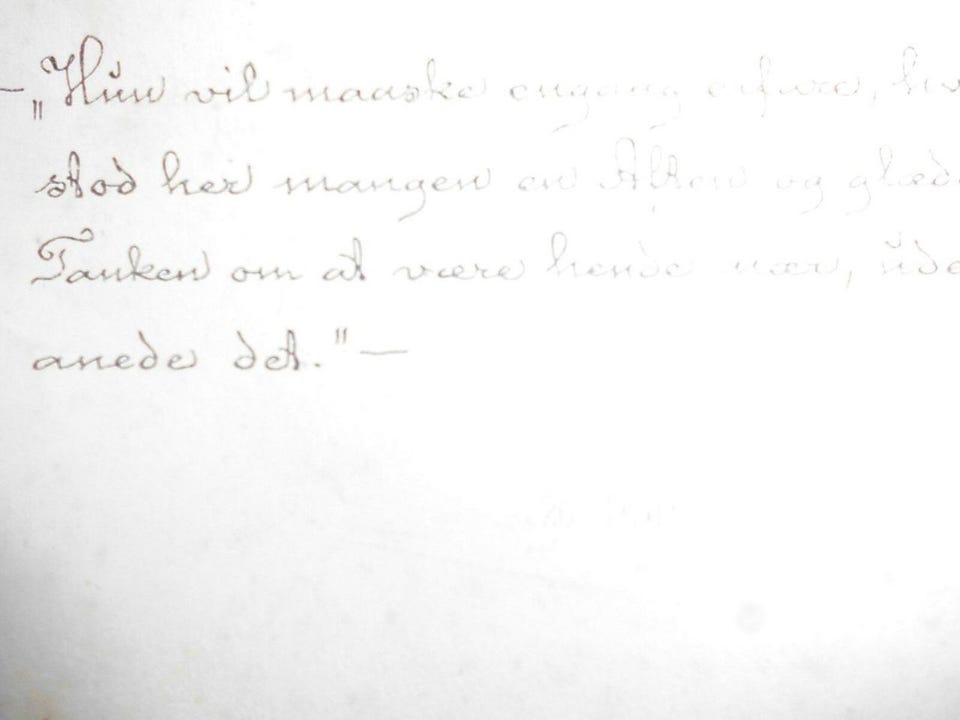 —„Hun vil maaske engang erfare, hv
stod her mangen en Aften og glæd
Tanken om at være hende nær, ude
anede det."—